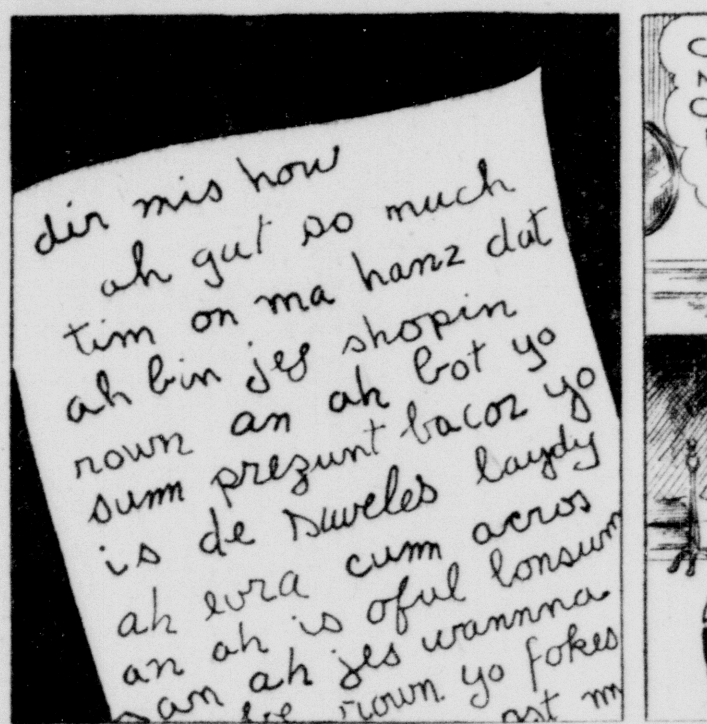 dir mis how
ah gut so much
tim on ma hanz dat
ah bin jes shopin
rown an ah bot yo
sum prezunt bacoz yo
is de sweles laydy
ah evra cum acros
an ah is oful lonsum
an ah jes wannna
be rown yo fokes